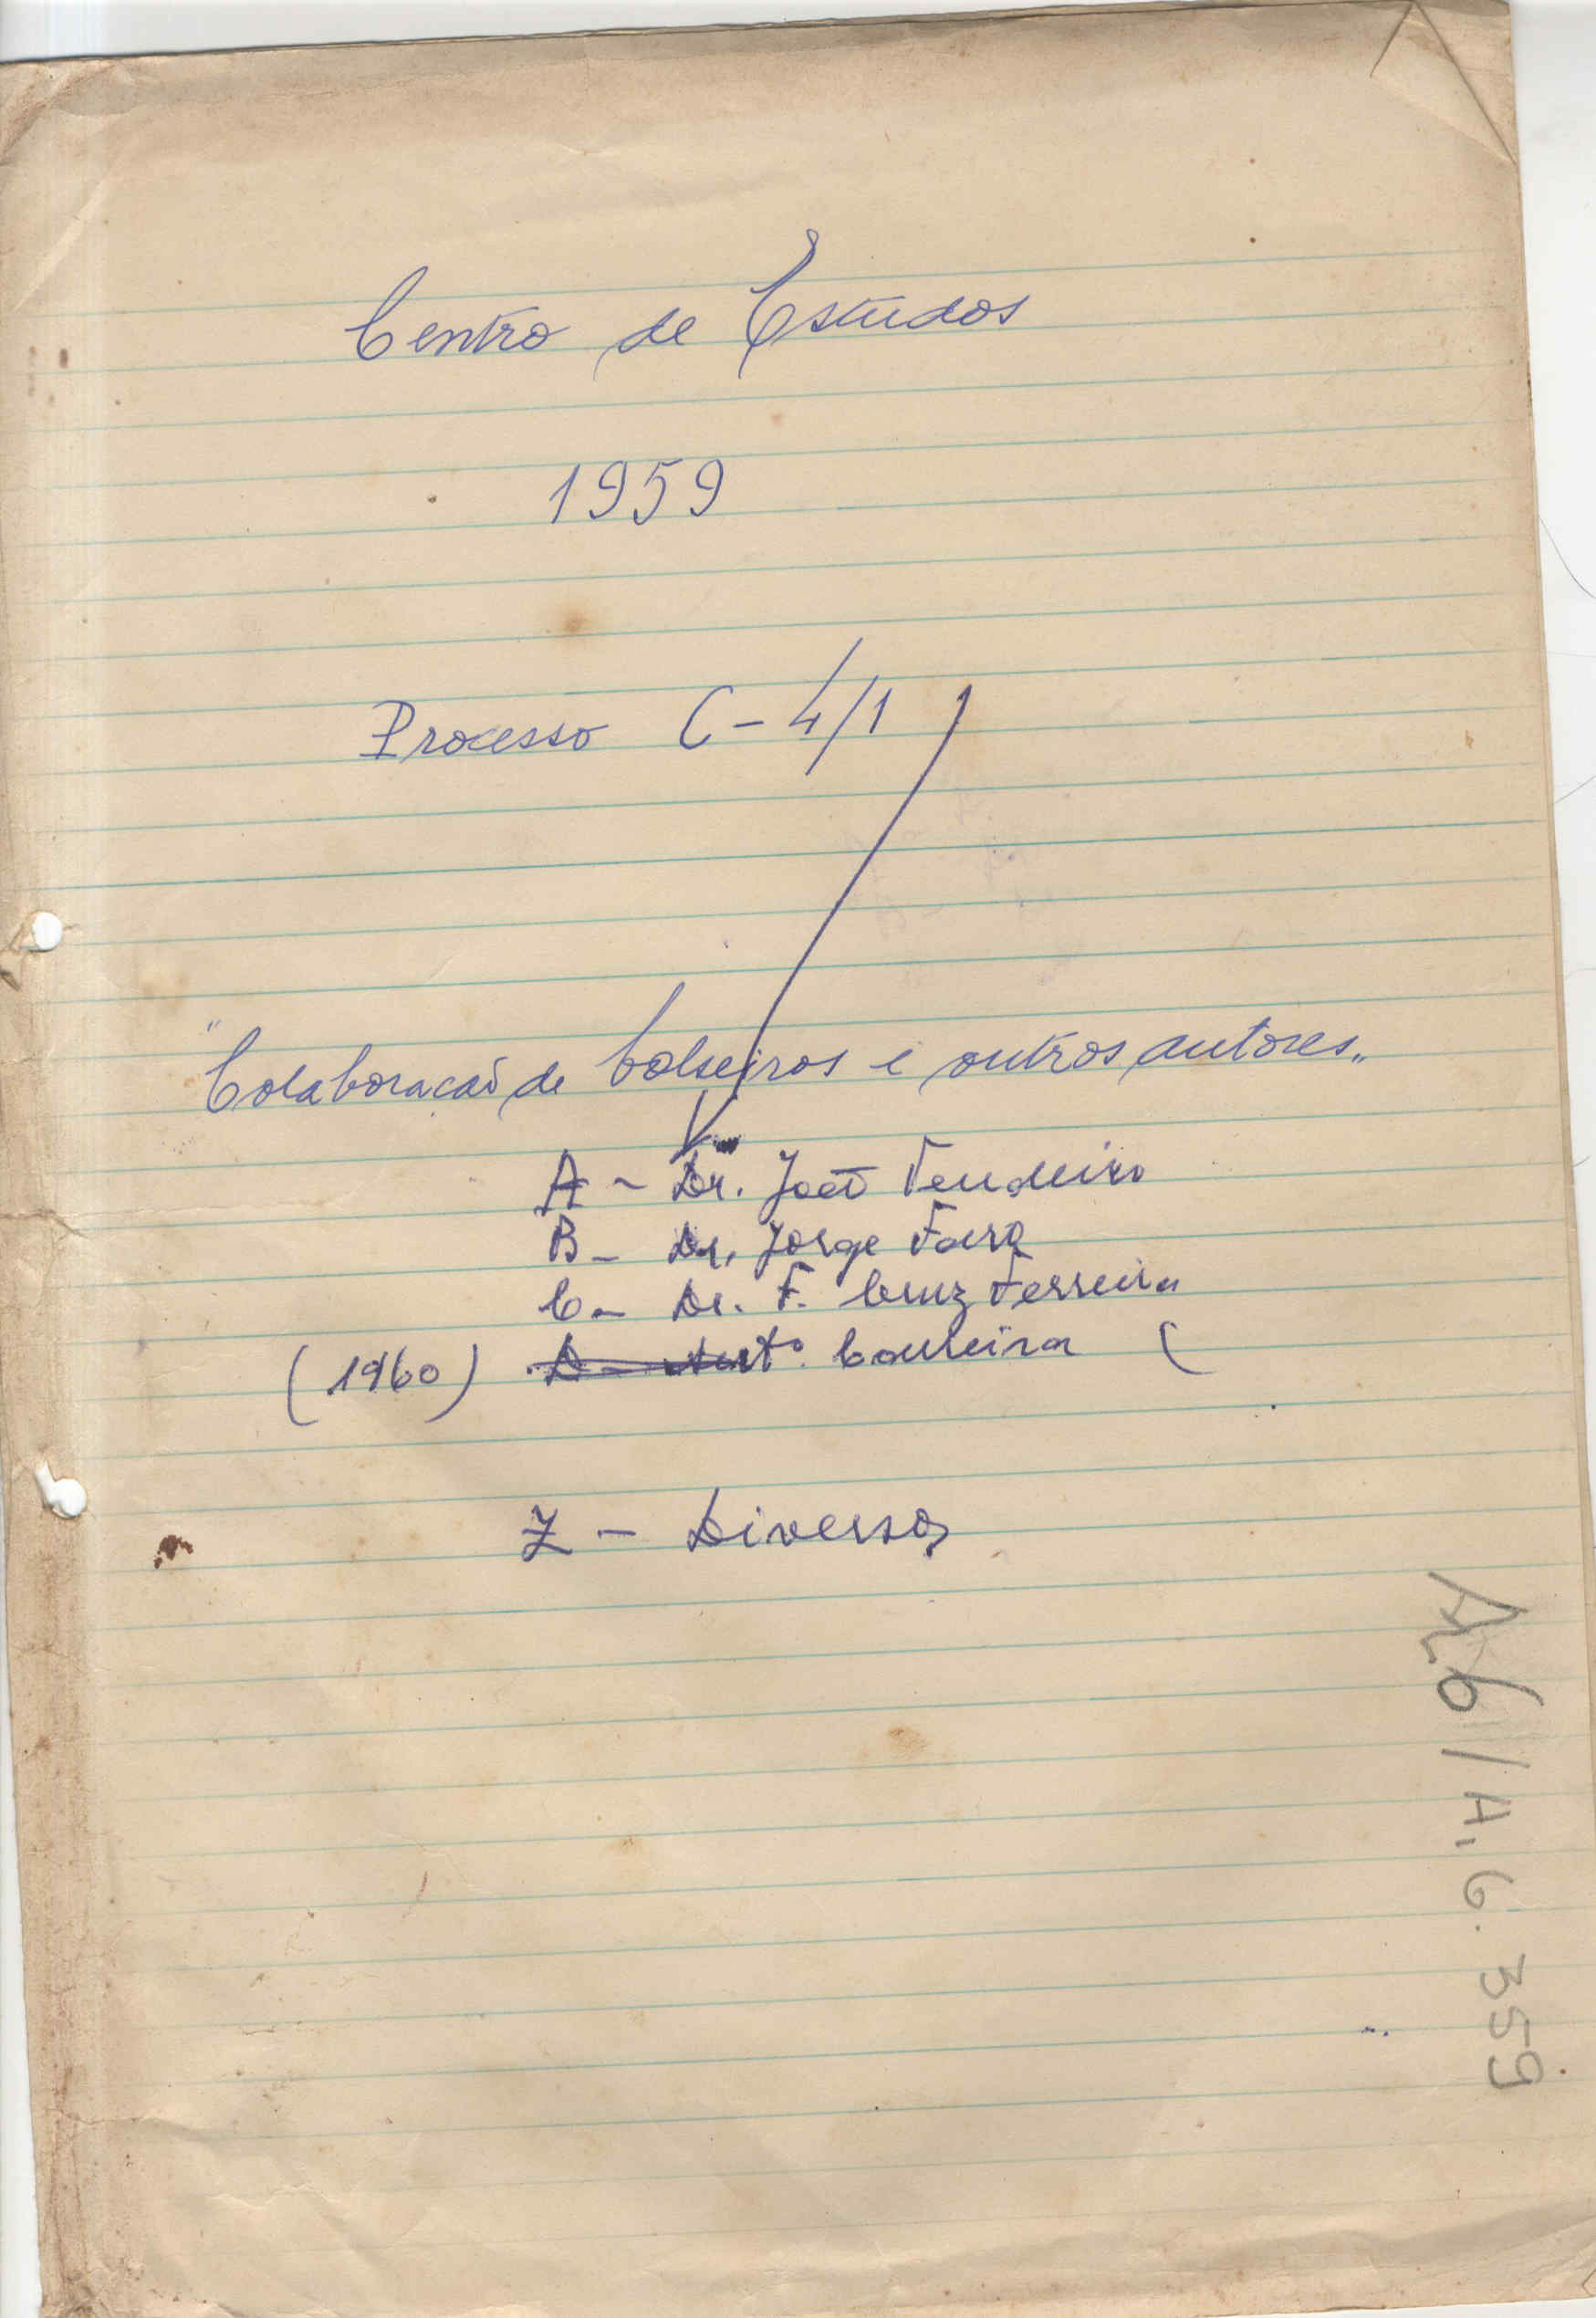 Centro de Estudos
1959
Processo C-4/1
"Colaboração de bolseiros e outros autores"
A - Dr. João Tendeiro
B - Dr. Jorge Faro
C - Dr. F. Cruz Ferreira
(1960) D - Antº. Carreira (
Z - Diversos
A6/A.6. 359